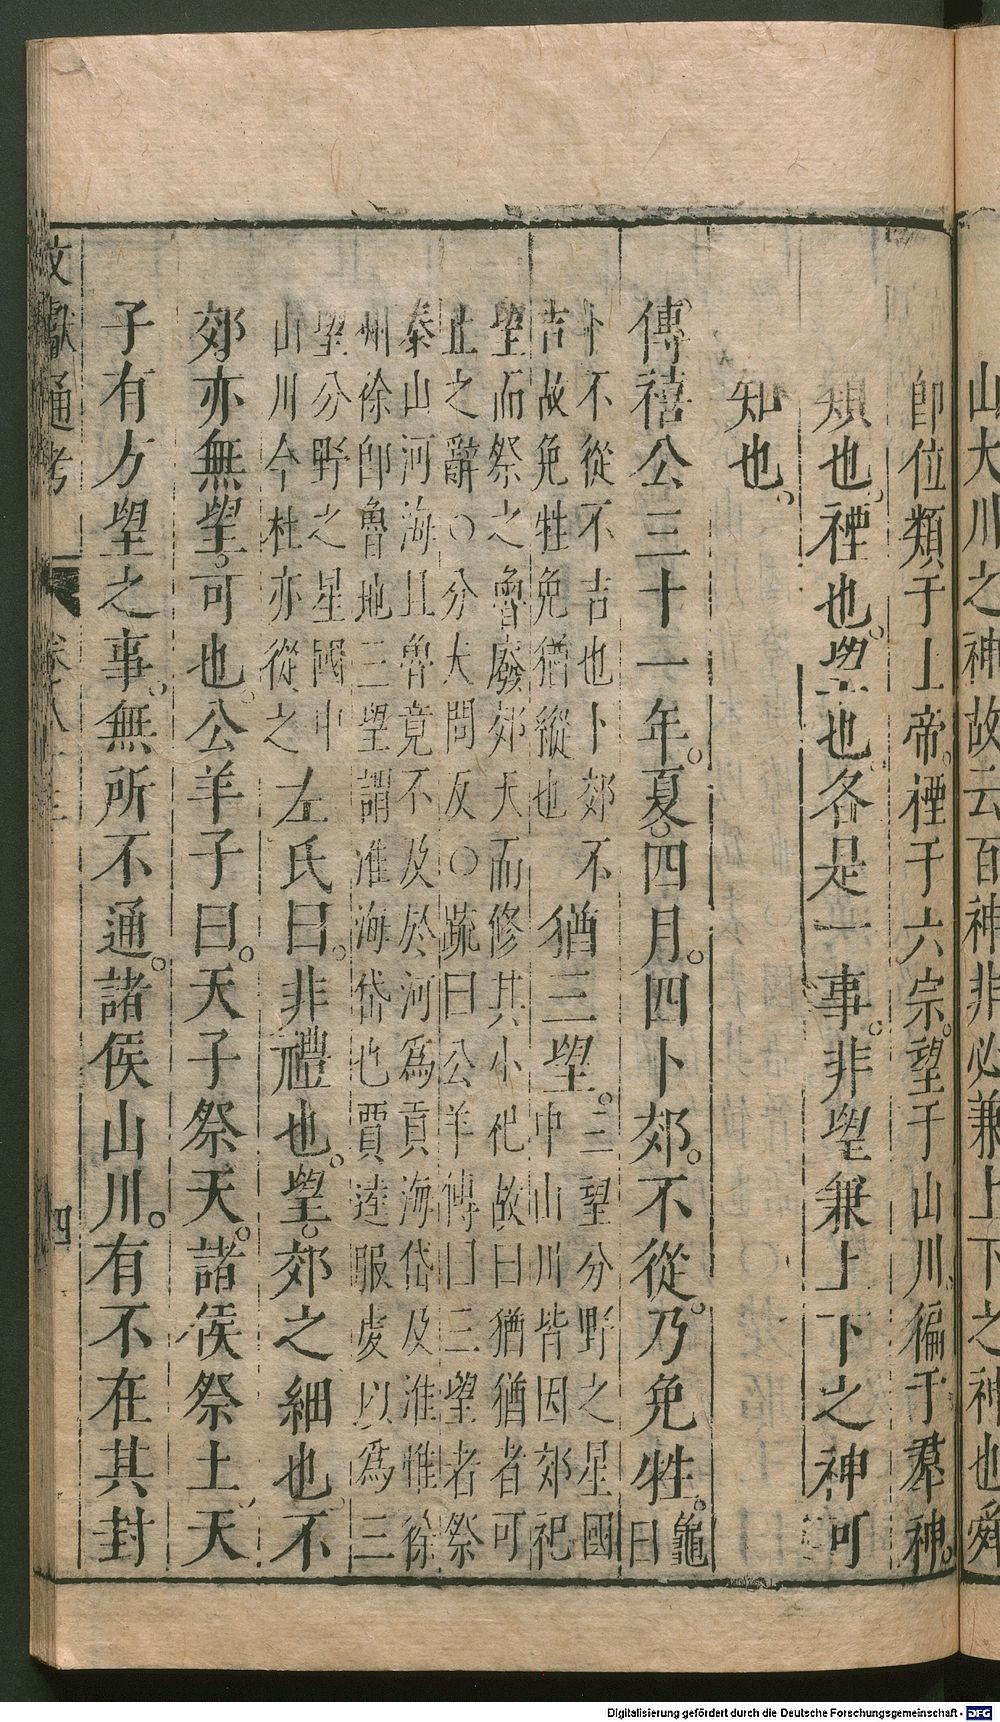 山大川之神故云百神非必兼上下之神也舜
卽位類于上帝禋于六宗望于山川徧于羣神
類也禋也望也各是一事非望兼上下之神可
知也
傳禧公三十一年夏四月四卜郊不從乃免牲龜曰
卜不從不吉也卜郊不吉故免牲免猶縱也猶三望三望分野之星國中山川皆因郊祀
望而祭之魯廢郊天而修其小祀故曰猶猶者可
止之辭○分大問反○疏曰公羊傳曰三望者祭
泰山河海且魯竟不及於河爲貢海岱及淮惟徐
州徐卽魯地三望謂淮海岱也賈逵服虔以爲三
望分野之星國中山川今杜亦從之左氏曰非禮也望郊之細也不
郊亦無望可也公羊子曰天子祭天諸侯祭土天
子有方望之事無所不通諸侯山川有不在其封
文獻通考
四
Digitalisierung gefördert durch die Deutsche Forschungsgemeinschaft - DFG